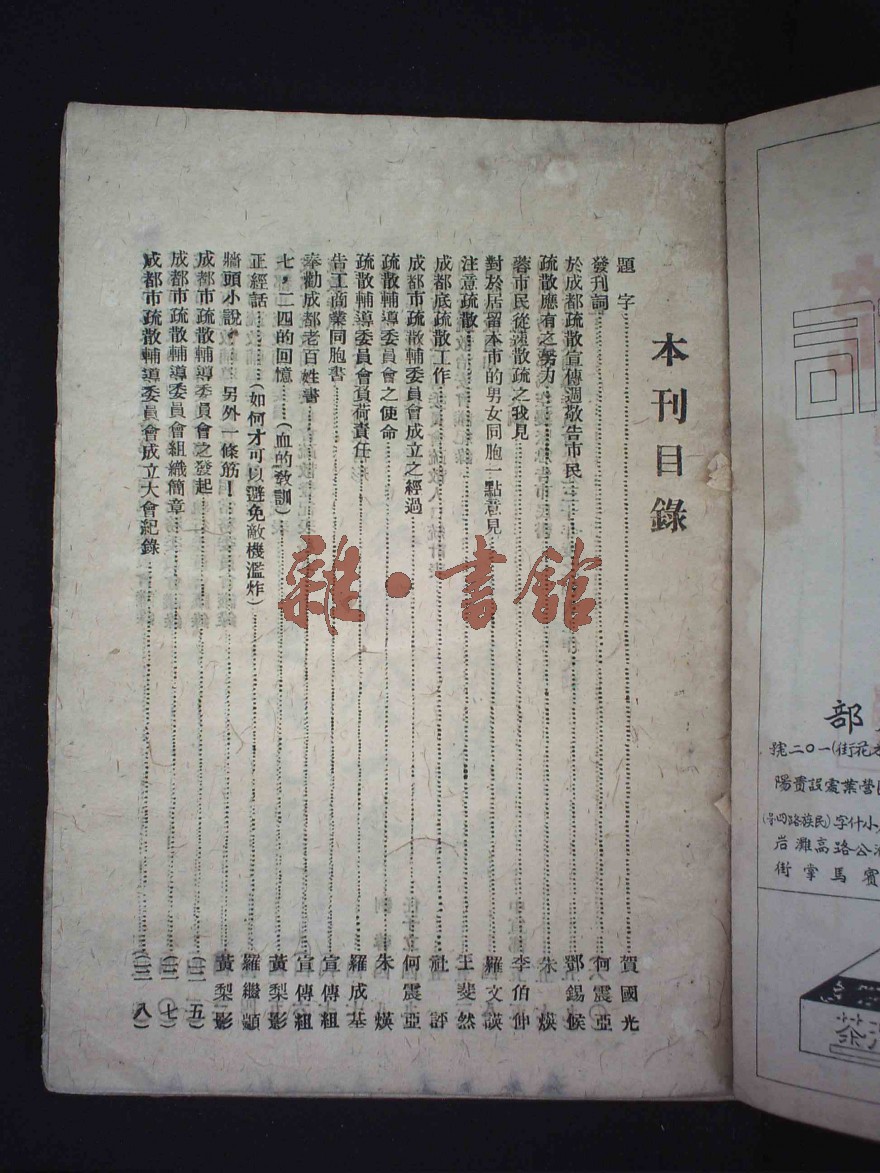 本刊目錄
題字 賀國光
發刊詞 何震亞
於成都疏散宣傳週敬告市民 鄧錫候
疏散應有之努力 朱煐
蓉市民從速散疏之我見 李伯仲
對於居留本市的男女同胞一點意見 羅文謨
注意疏散 王斐然
成都底疏散工作 社評
成都市疏散輔導委員會成立之經過 何震亞
疏散輔導委員會之使命 朱煐
疏散輔導委員會負荷責任 羅成基
告工商業同胞書 宣傳組
奉勸成都老百姓書 宣傳組
七,二四的回憶……(血的敎訓) 黃梨影
正經話……(如何才可以避免敵機濫炸) 羅繼顓
牆頭小說……另外一條筋! 黃梨影
成都市疏散輔導委員會之發起
成都市疏散輔導委員會組織簡章
成都市疏散輔導委員會成立大會紀錄
雜·書館
部
花街(一〇二號
營業處設貴陽
小什字(民族路四
公路高灘岩
賓馬掌街
茶